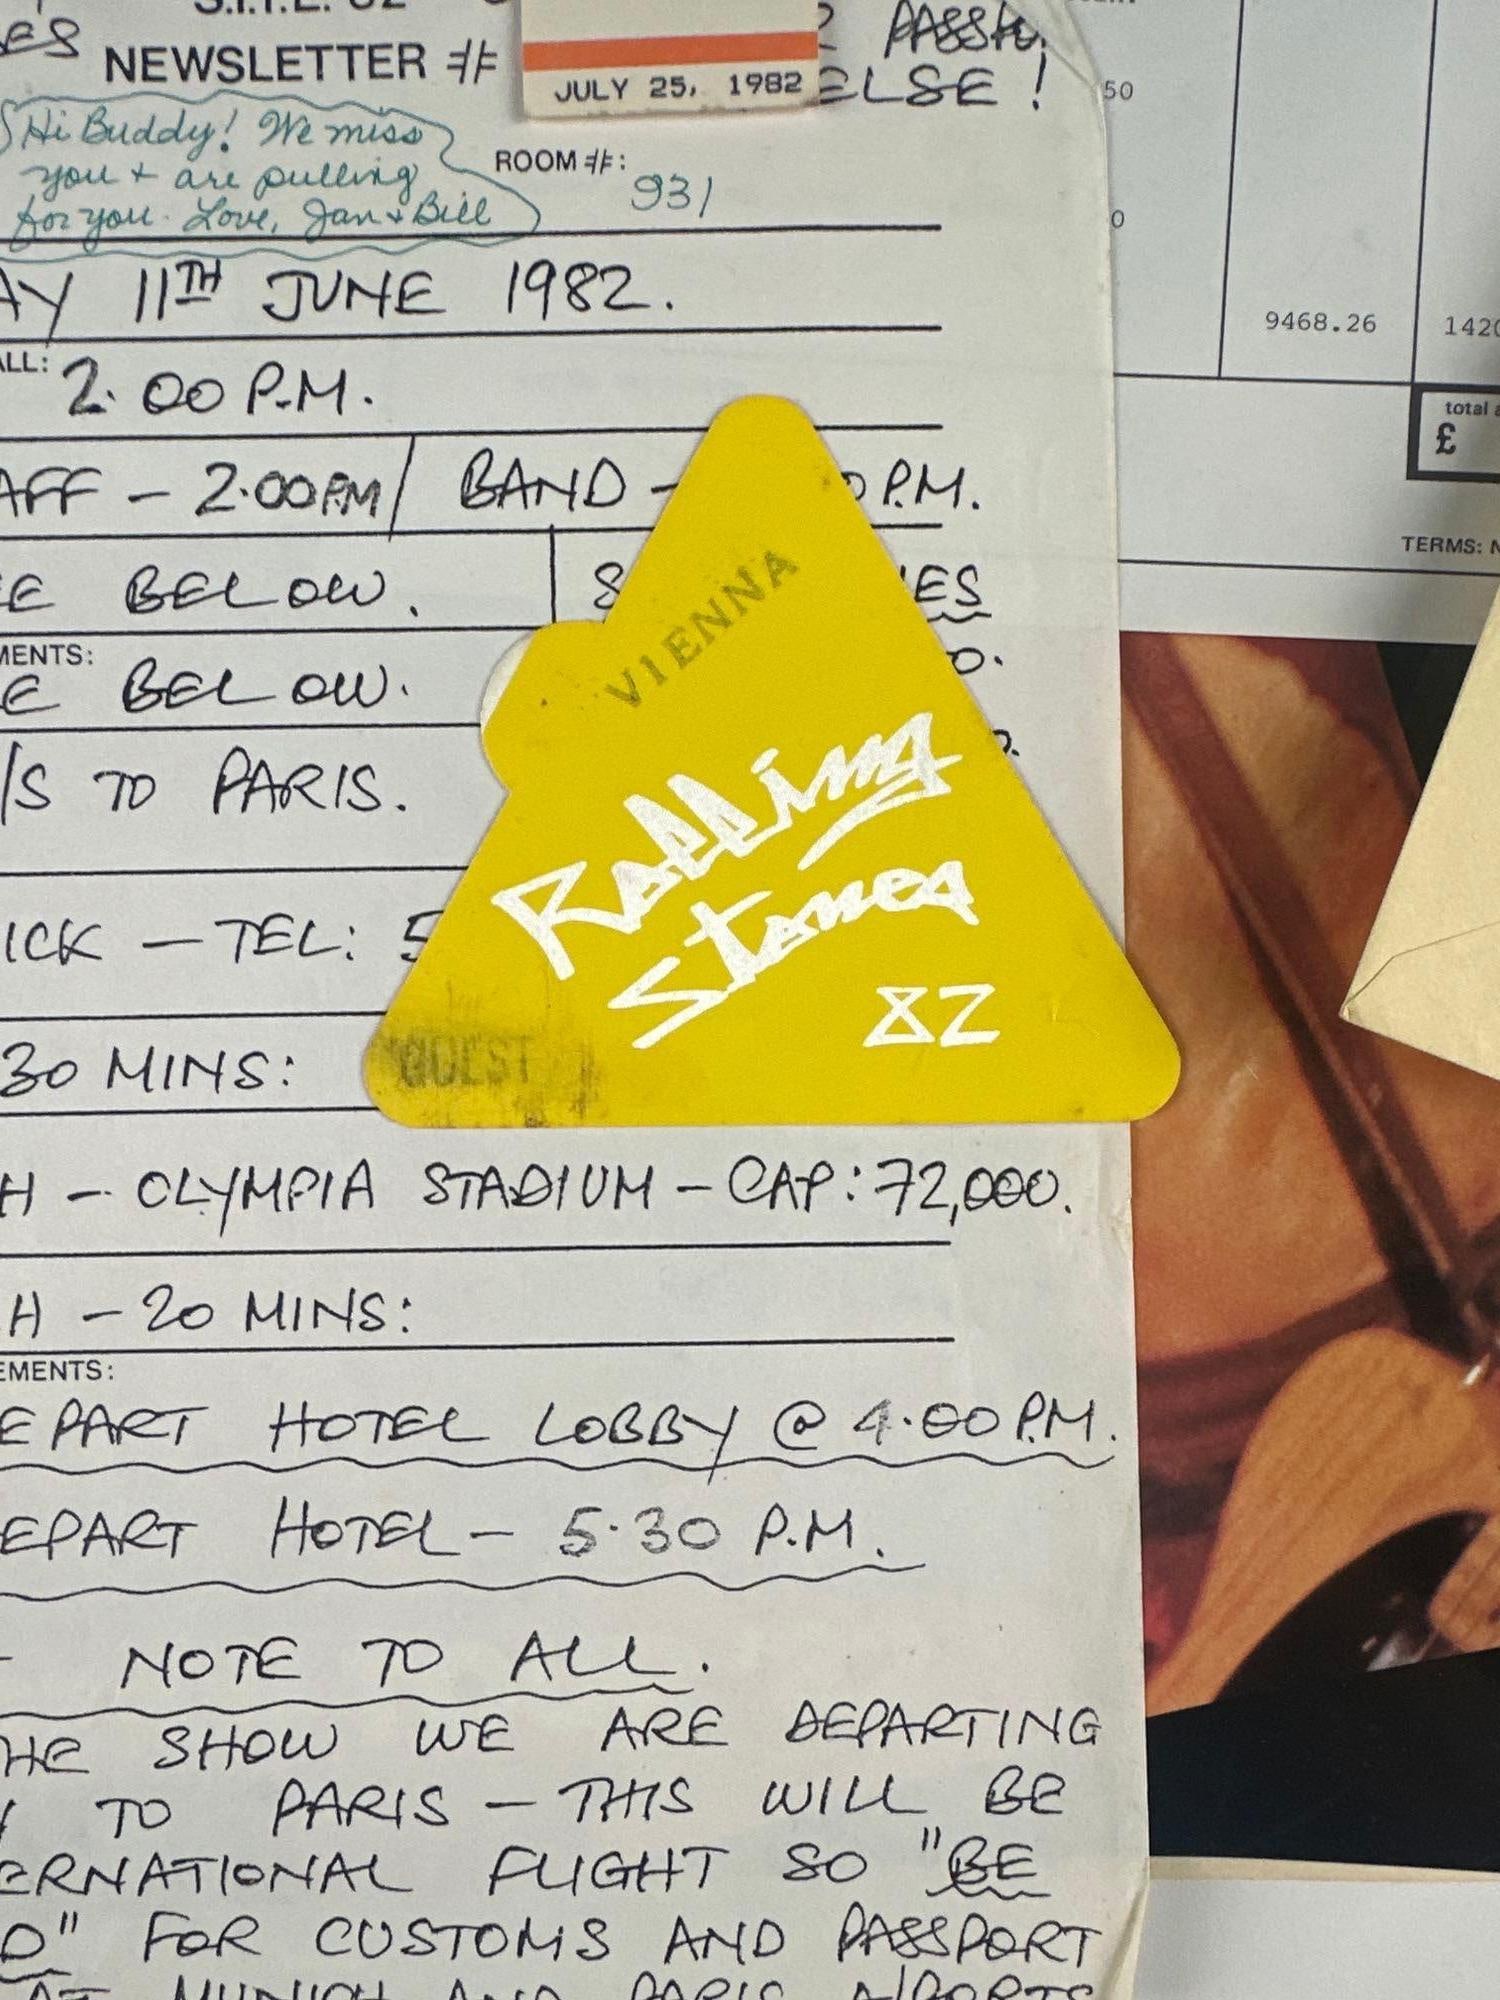 S.I.T.E. 82
NEWSLETTER #
PASSPO
ELSE!
JULY 25, 1982
Hi Buddy! We miss
you + are pulling
for you. Love, Jan + Bill
ROOM #: 931
AY 11TH JUNE 1982.
ALL: 2.00 P.M.
AFF - 2.00 P.M / BAND - 0 P.M.
E BELOW. S ES
MENTS:
E BELOW. 0.
/S TO PARIS.
ICK - TEL: 5
30 MINS:
H - OLYMPIA STADIUM - CAP: 72,000.
H - 20 MINS:
EMENTS:
EPART HOTEL LOBBY @ 4.00 P.M.
EPART HOTEL - 5.30 P.M.
NOTE TO ALL.
HE SHOW WE ARE DEPARTING
TO PARIS - THIS WILL BE
ERNATIONAL FLIGHT SO "BE
D" FOR CUSTOMS AND PASSPORT
AT MUNICH AND PARIS AIRPORTS
VIENNA
Rolling
Stones
82
GUEST
50
0
9468.26 1420
total a
£
TERMS: N